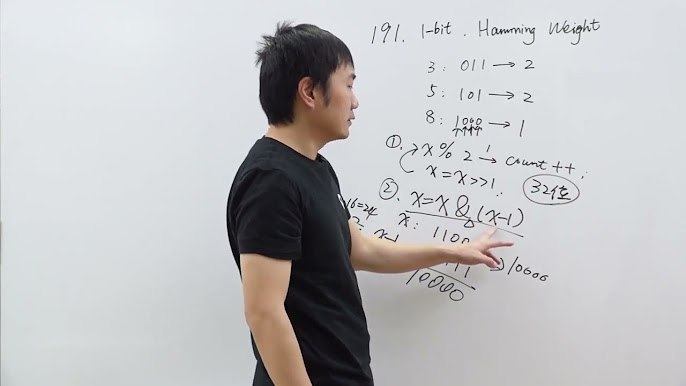 191. 1-bit. Hamming Weight
3: 011 → 2
5: 101 → 2
8: 1000 → 1
①. x % 2 →¹ count ++;
x = x >> 1.
32位
②. x = x & (x-1)
16=24
x: 1100
x-1
11 → 10000
10000